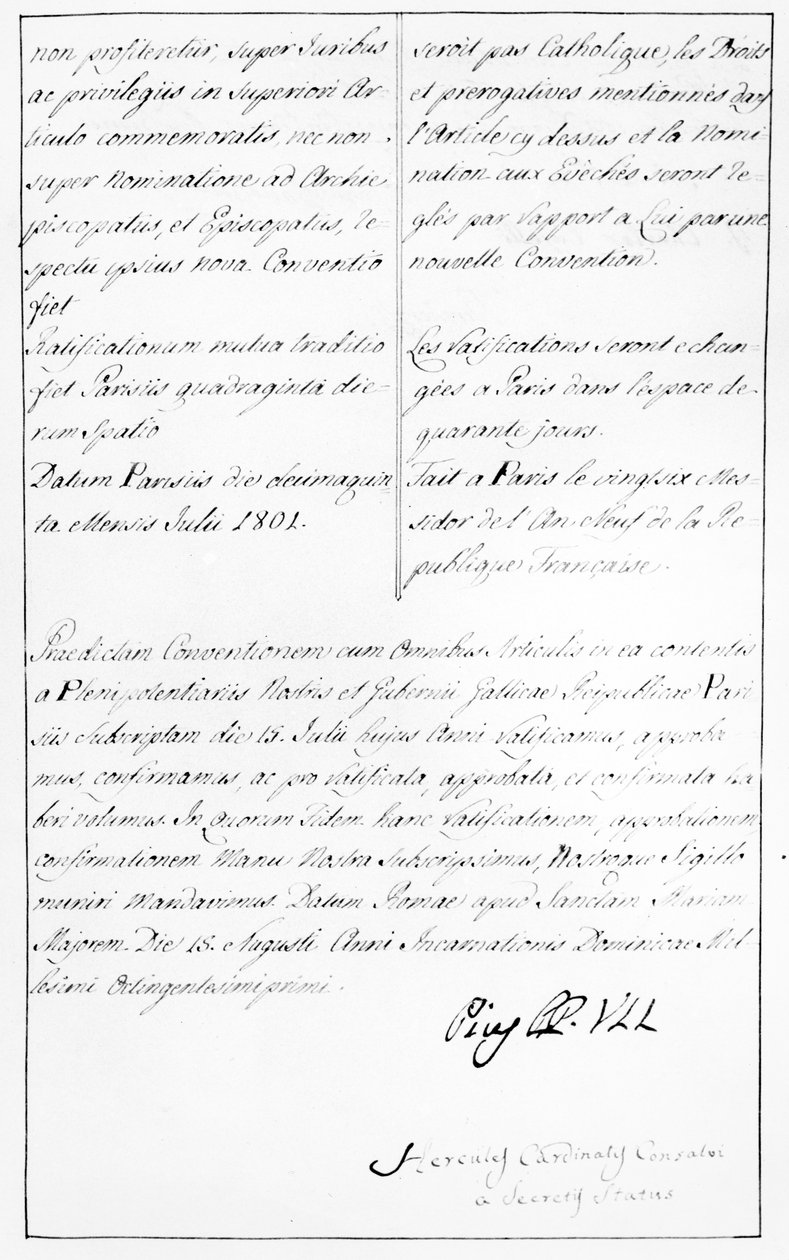 non profiteretur, super Iuribus
ac privilegiis in superiori Ar-
ticulo commemoratis, nec non
super Nominatione ad Archie
piscopatus, et Episcopatus, re-
spectu ipsius nova Conventio
fiet
Ratificationum mutua traditio
fiet Parisiis quadraginta die-
rum spatio
Datum Parisiis die decimaquin-
ta Mensis Julii 1801.
seroit pas Catholique, les Droits
et prerogatives mentionnés dans
l'Article cy dessus et la Nomi-
nation aux Evêchés seront re-
glés par rapport a Lui par une
nouvelle Convention.
Les ratifications seront echan-
gées a Paris dans l'espace de
quarante jours.
Fait a Paris le vingtsix Mes-
sidor de l'An Neuf de la Re-
publique Française.
Praedictam Conventionem cum Omnibus Articulis in ea contentis
a Plenipotentiariis Nostris et Gubernii Gallicae Reipublicae Pari
siis Subscriptam die 15. Julii hujus Anni ratificamus, approba-
mus, confirmamus, ac pro ratificata, approbata, et confirmata ha
beri volumus. In quorum Fidem hanc ratificationem, approbationem,
confirmationem Manu Nostra subscripsimus, Nostroque Sigillo
muniri mandavimus. Datum Romae apud Sanctam Mariam
Majorem Die 15. Augusti Anni Incarnationis Dominicae Mil-
lesimi Octingentesimi primi.
Pius PP. VII
Hercules Cardinalis Consalvi
a Secretis Status